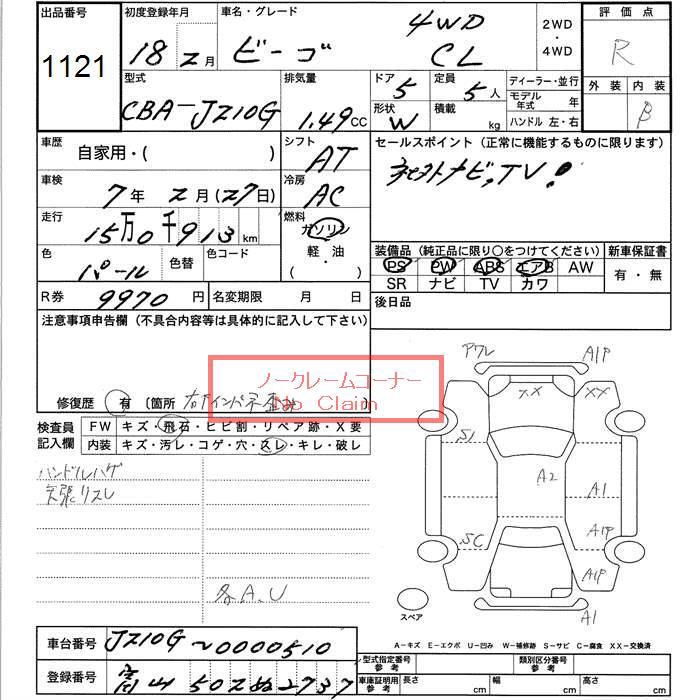 出品番号 初度登録年月 車名・グレード 2WD・4WD 評価点
1121 18 2月 ビーゴ 4WD CL R
外装 内装
B
型式 排気量 ドア 5 定員 5人 ディーラー・並行
CBA-JZ10G 1.49CC 形状 W 積載 kg モデル年式 年
ハンドル 左・右
車歴 自家用・( ) シフト AT セールスポイント(正常に機能するものに限ります)
車検 7年 2月(27日) 冷房 AC ナビ,TV!
走行 15万0千913km 燃料 ガソリン
軽・油
( )
色 パール 色替 色コード
装備品(純正品に限り○をつけてください) 新車保証書
PS PW ABS エアB AW 有・無
SR ナビ TV カワ
R券 9970円 名変期限 月 日 後日品
注意事項申告欄(不具合内容等は具体的に記入して下さい)
ノークレームコーナー
No Claim
修復歴 有 〔箇所 右Fインパネ歪み
検査員記入欄 FW キズ・飛石・ヒビ割・リペア跡・X要
内装 キズ・汚レ・コゲ・穴・スレ・キレ・破レ
ハンドルハゲ
天張リスレ
各A.U
アワレ A1P
XX XX
S1
A2
A1
SC A1P
A1P
A1
スペア
A-キズ E-エクボ U-凹み W-補修跡 S-サビ C-腐食 XX-交換済
車台番号 JZ10G~0000510
登録番号 富山 502 ぬ 2737
型式指定番号 参考 類別区分番号 参考
車庫証明用 参考 長さ cm 幅 cm 高さ cm